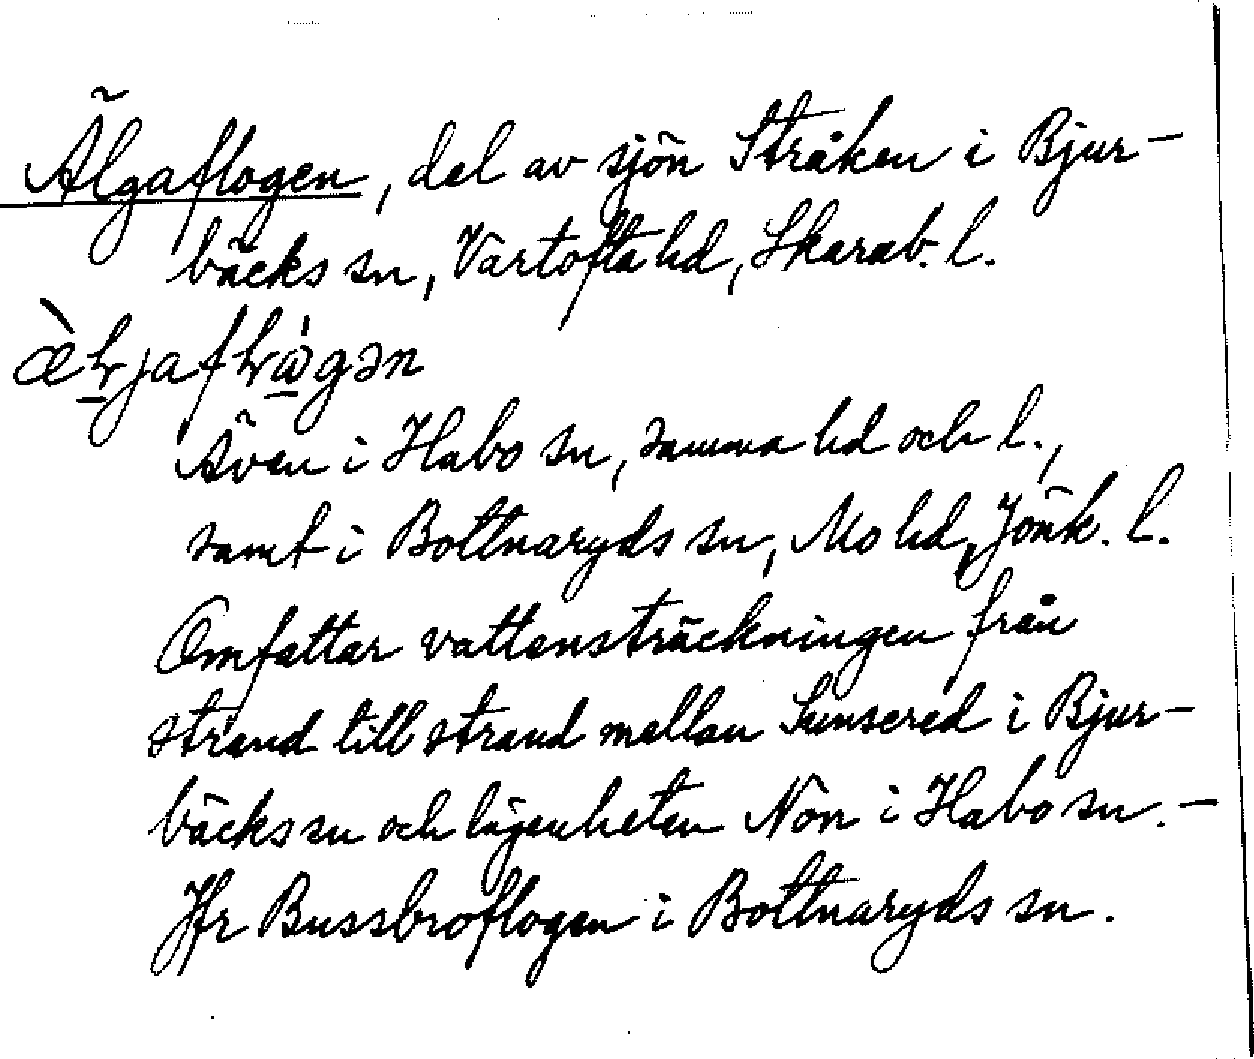 Älgaflogen, del av sjön Stråken i Bjur-
bäcks sn, Vartofta hd, Skarab. l.
Även i Habo sn, samma hd och l.,
samt i Bottnaryds sn, Mo hd, Jönk. l.
Omfattar vattensträckningen från
strand till strand mellan Sunsered i Bjur-
bäcks sn och lägenheten Nön i Habo sn. -
Jfr Bussbroflogen i Bottnaryds sn.